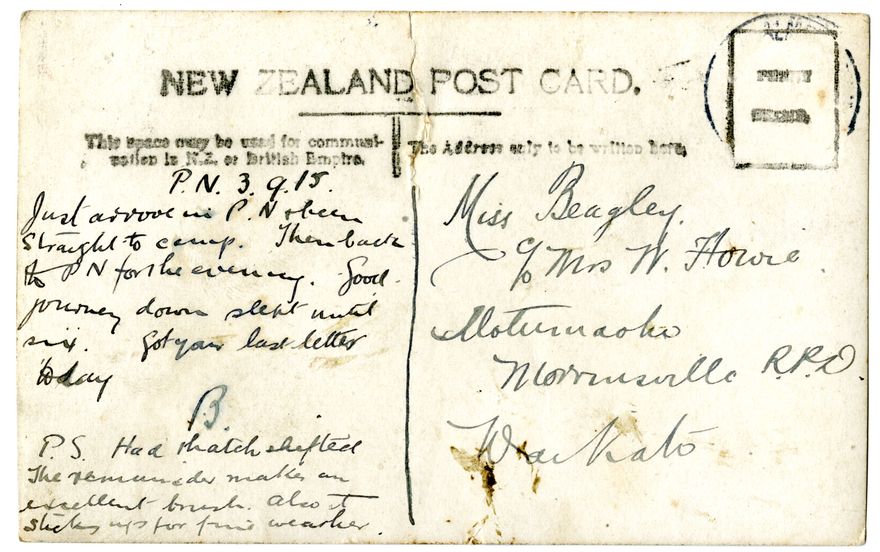 NEW ZEALAND POST CARD.
This space may be used for communi-
cation in N.Z. or British Empire.
The Address only to be written here.
P.N. 3.9.15.
Just arrove in P.N & been
straight to camp. Then back
to P N for the evening. Good
journey down slept until
six. Got your last letter
today
B.
P.S. Had thatch shifted
The remainder makes an
excellent brush. Also it
sticks up for fine weather.
Miss Beagley.
c/o Mrs W. Howie.
Motumaoho
Morrinsville R.P.D.
Waikato
PENNY